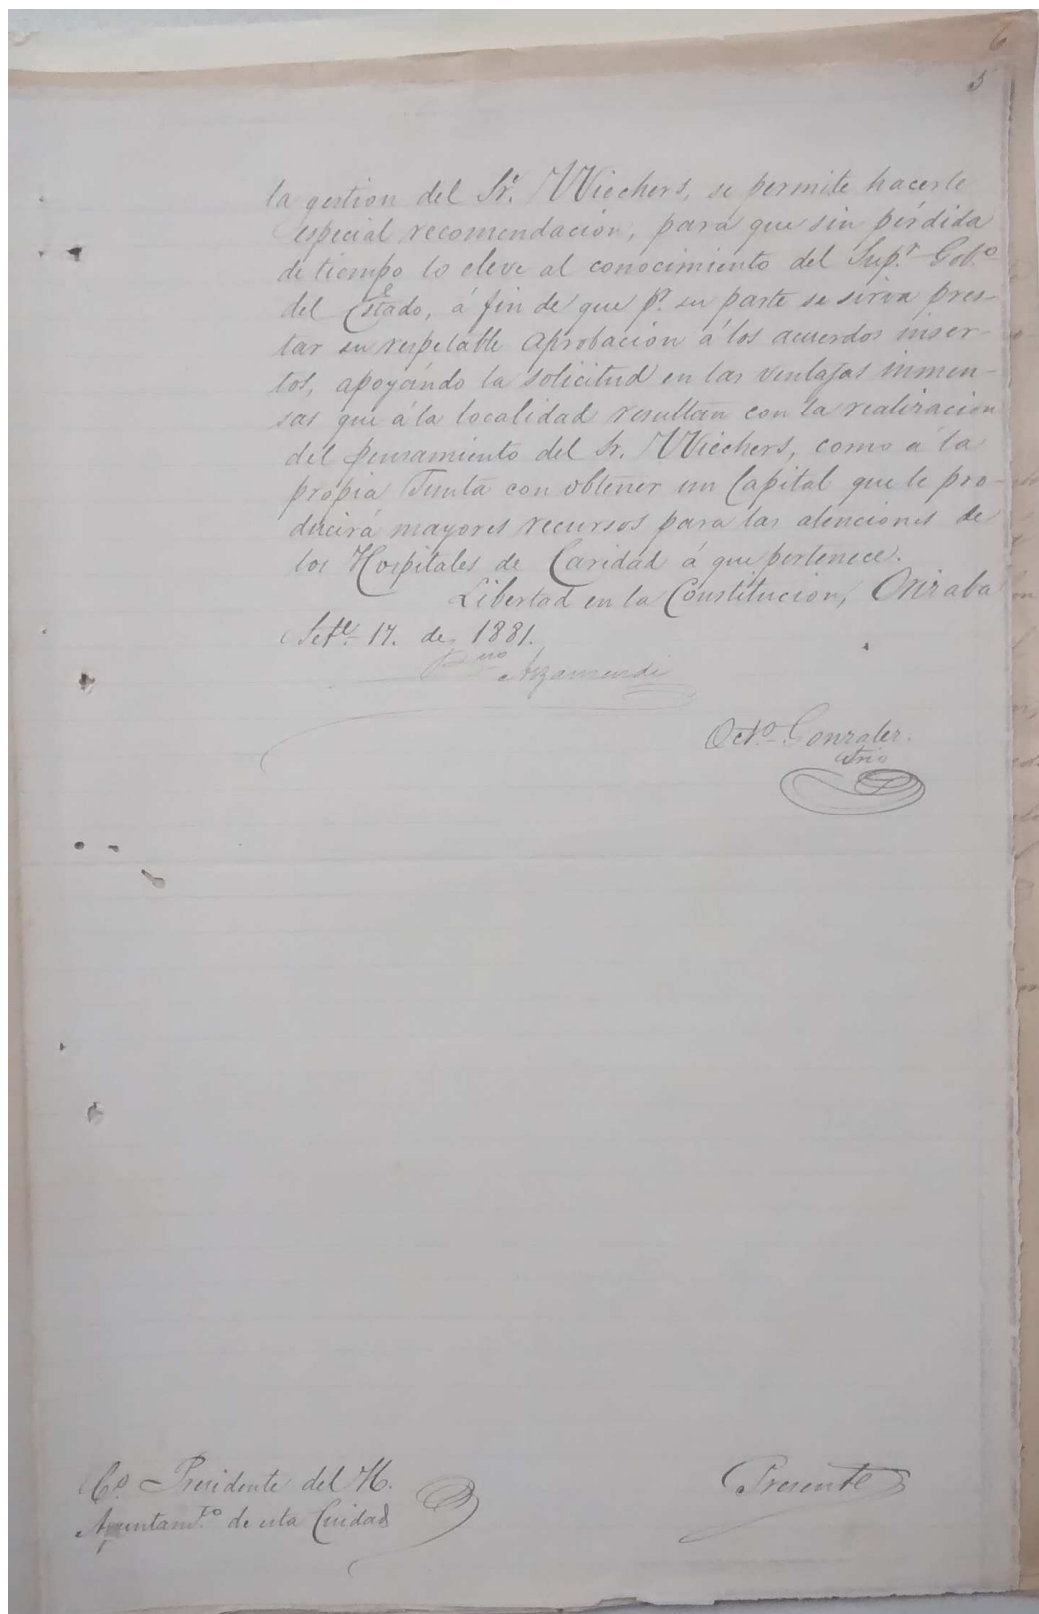 6
5
la gestion del Sr. Wiechers, se permite hacerle
especial recomendación, para que sin pérdida
de tiempo lo eleve al conocimiento del Sup.r Gob.o
del Estado, á fin de que p.r su parte se sirva pres-
tar su respetable aprobacion á los acuerdos inser-
tos, apoyando la solicitud en las ventajas inmen-
sas que á la localidad resultan con la realizacion
del pensamiento del Sr. Wiechers, como á la
propia Junta con obtener un Capital que le pro-
ducirá mayores recursos para las atenciones de
los Hospitales de Caridad á que pertenece.
Libertad en la Constitucion, Orizaba
Set.e 17. de 1881.
Arzamendi
Oct.o Gonzalez.
Srio
C.o Presidente del H.
Ayuntam.to de esta Ciudad
Presente